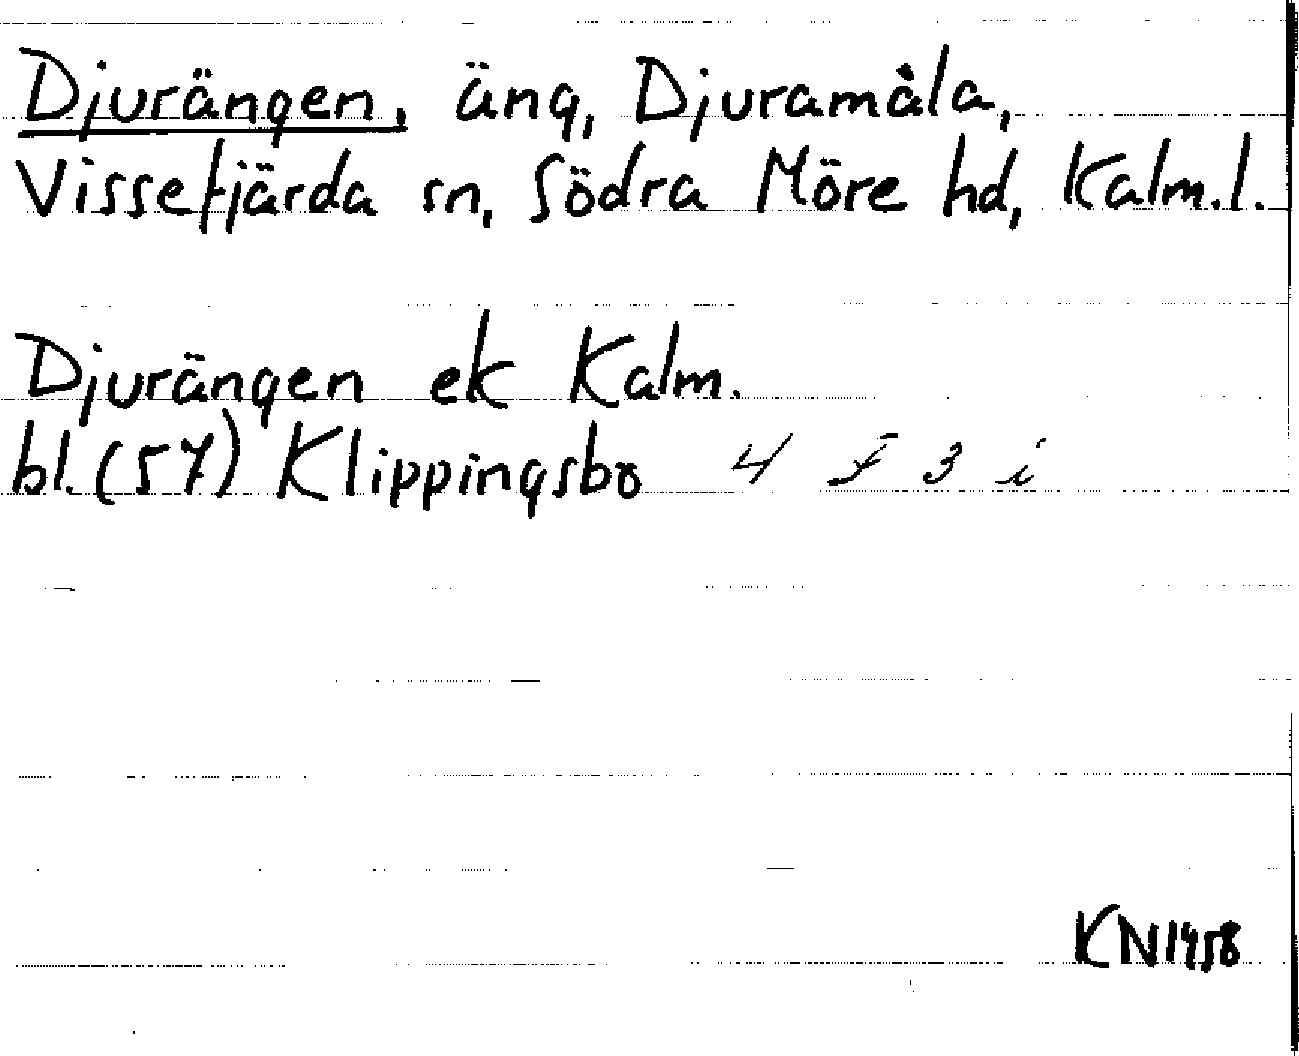 Djurängen, äng, Djuramåla,
Vissefjärda sn, Södra Möre hd, Kalm.l.
Djurängen ek Kalm.
bl.(57) Klippingsbo 4 F 3 i
KN1958